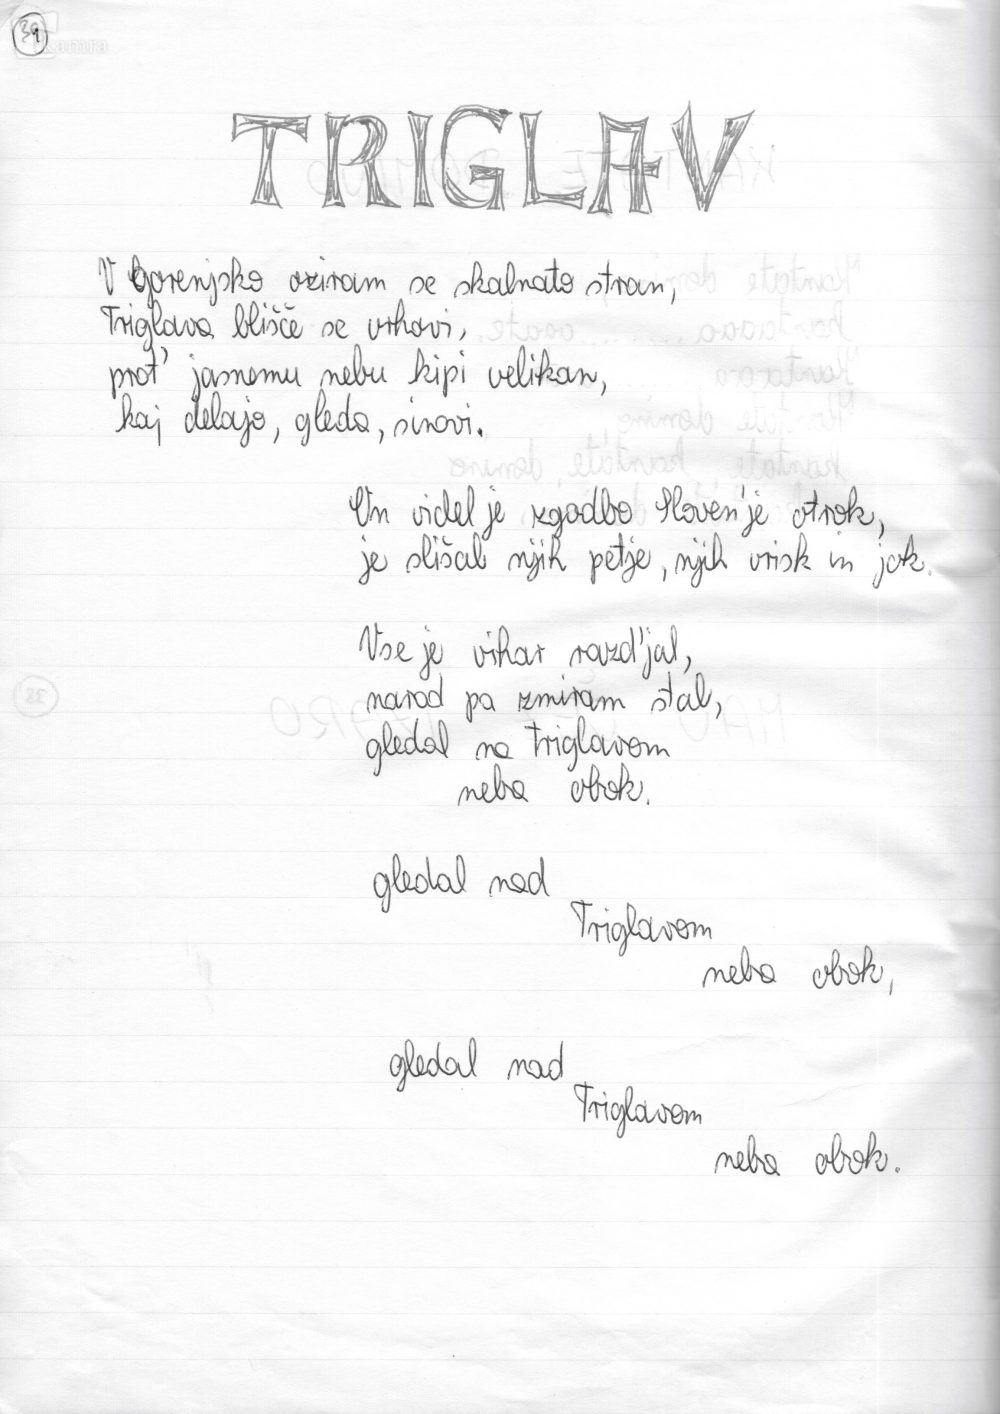 39
kamra
TRIGLAV
V Gorenjsko oziram se skalnato stran,
Triglava blišče se vrhovi,
prot' jasnemu nebu kipi velikan,
kaj delajo, gleda, sinovi.
On videl je zgodbo Sloven'je otrok,
je slišal njih petje, njih vrisk in jok.
Vse je vihar razd'jal,
narod pa zmiram stal,
gledal na Triglavom
neba obok.
gledal nad
Triglavom
neba obok,
gledal nad
Triglavom
neba obok.